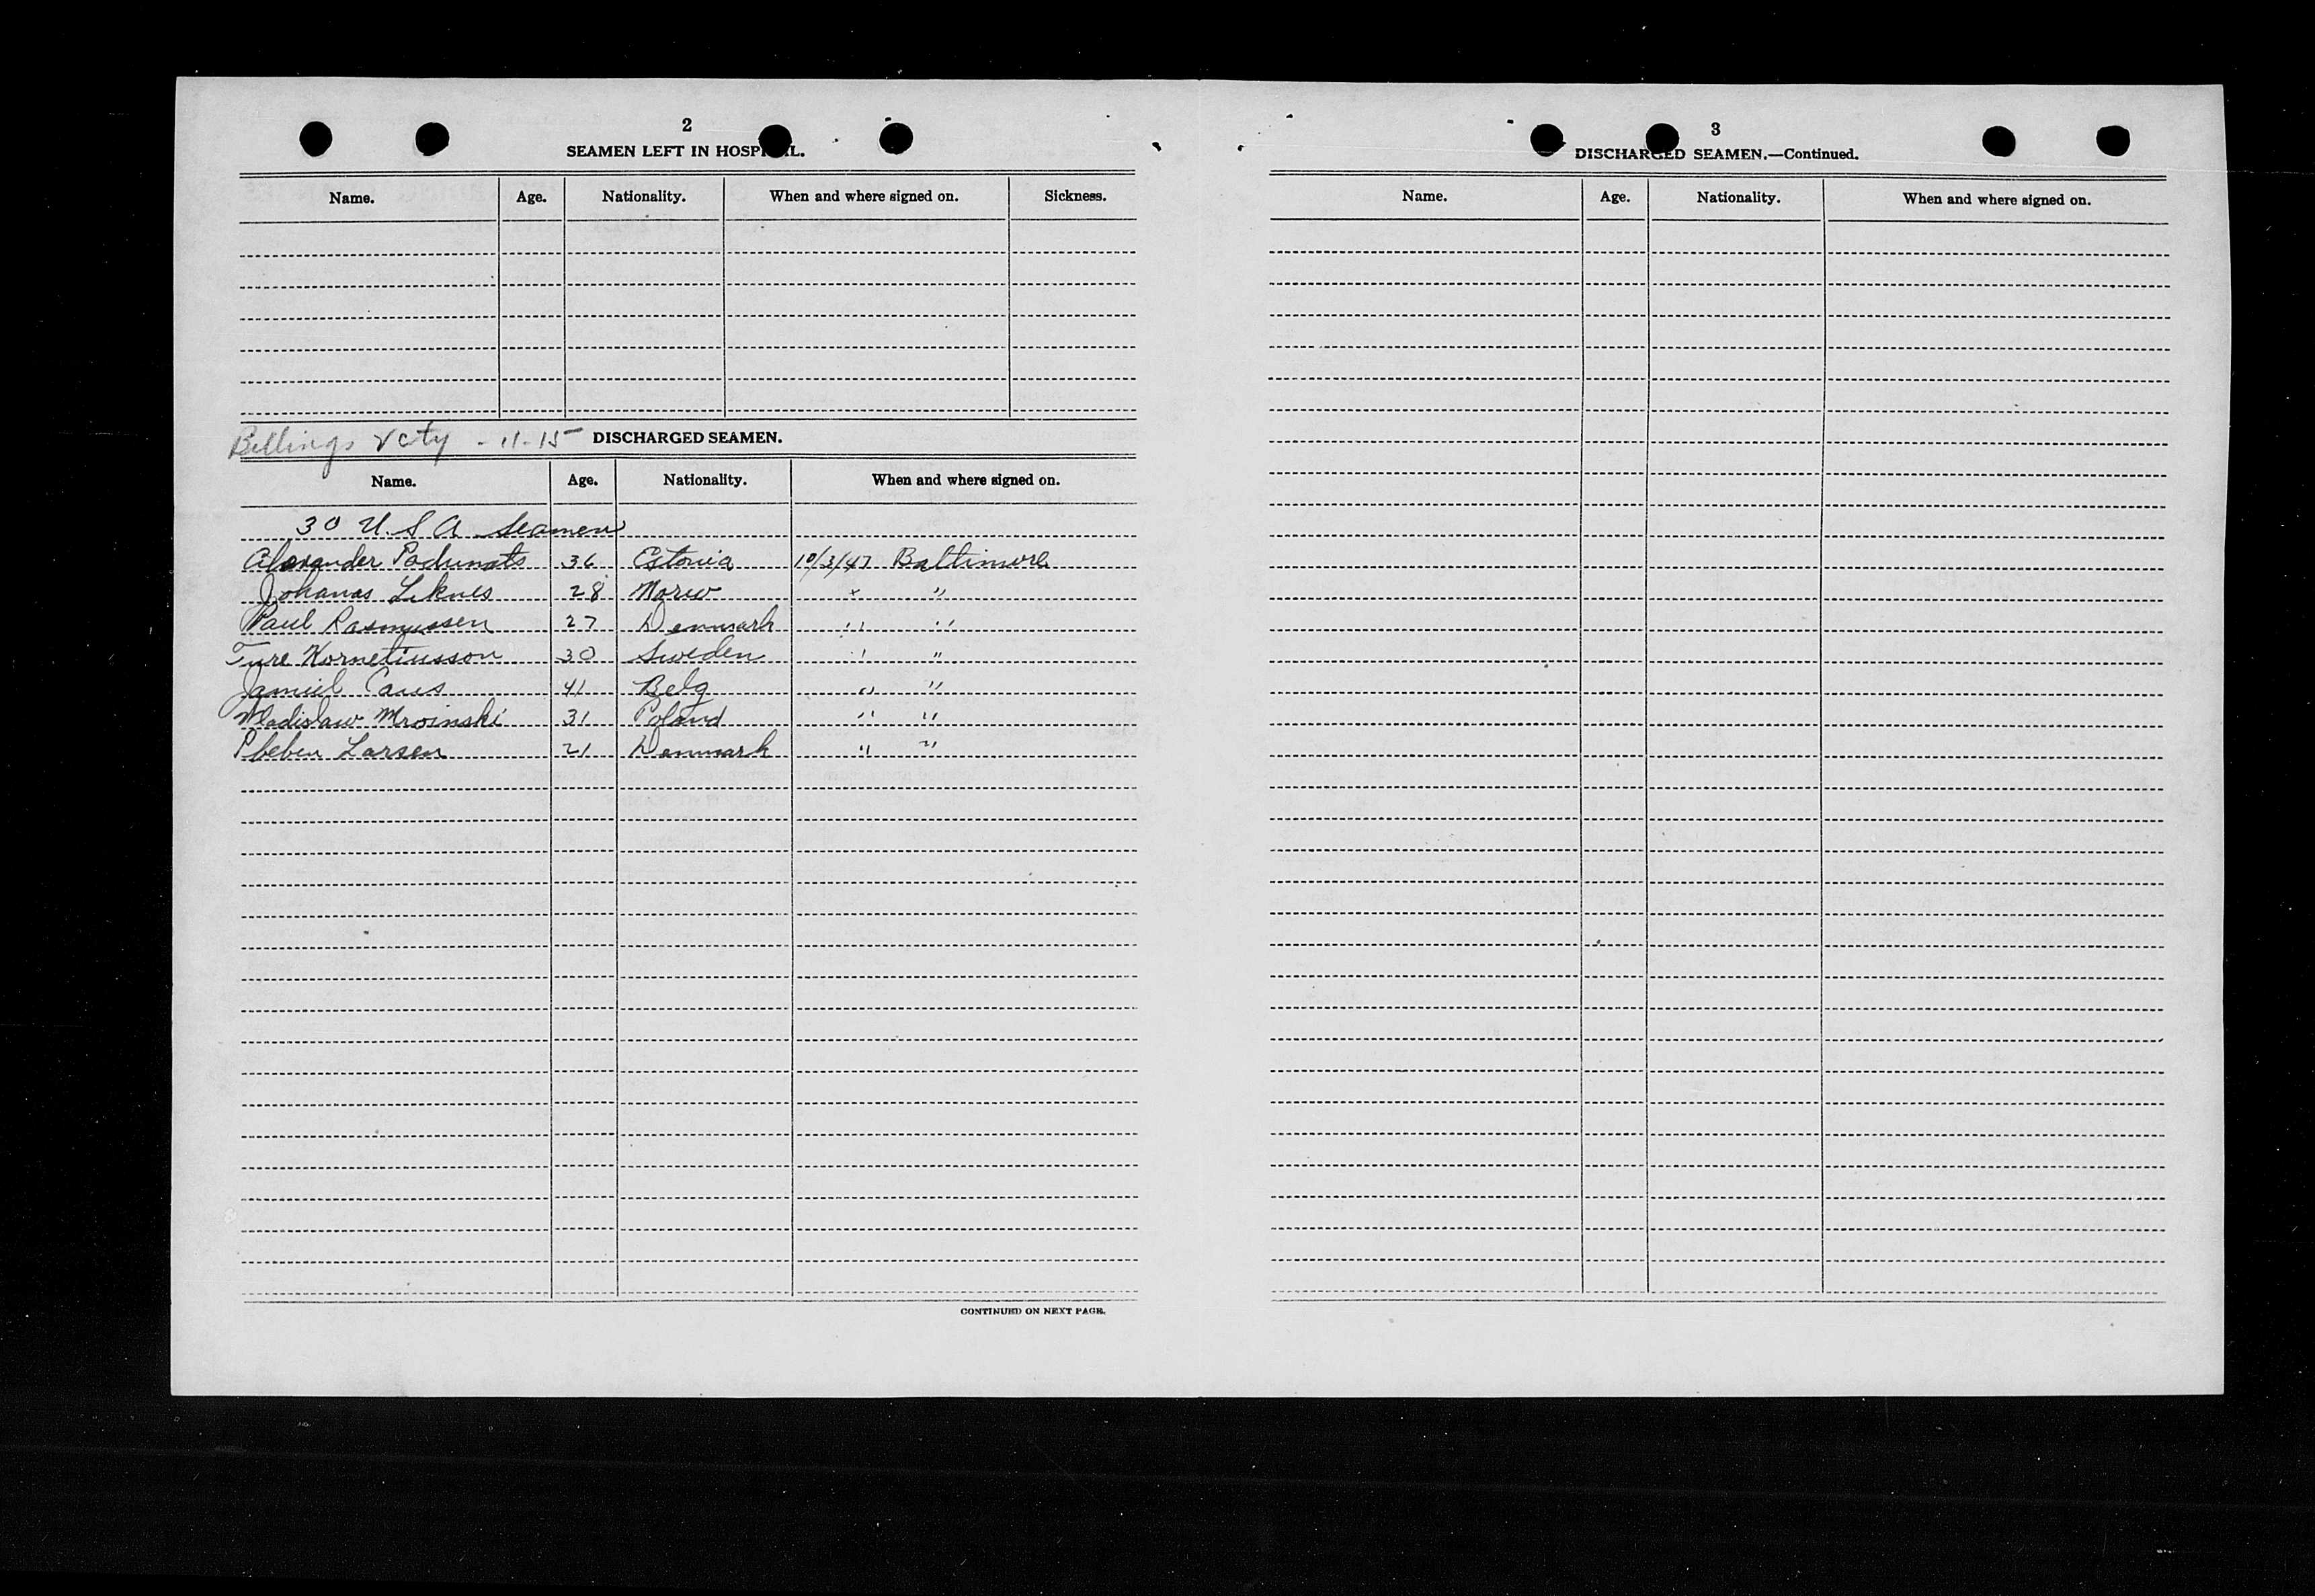 2
SEAMEN LEFT IN HOSPITAL.
Name. Age. Nationality. When and where signed on. Sickness.
Billings Vcty - 11-15 DISCHARGED SEAMEN.
Name. Age. Nationality. When and where signed on.
30 U.S A Seamen
Alexander Podunats 36 Estonia 10/3/47 Baltimore
Johanas Leknes 28 Norw " "
Paul Rasmussen 27 Denmark " "
Ture Korneliusson 30 Sweden " "
Jamiel Caus 41 Belg " "
Wladislaw Mroinski 31 Poland " "
Pbeben Larsen 21 Denmark " "
CONTINUED ON NEXT PAGE.
3
DISCHARGED SEAMEN.—Continued.
Name. Age. Nationality. When and where signed on.